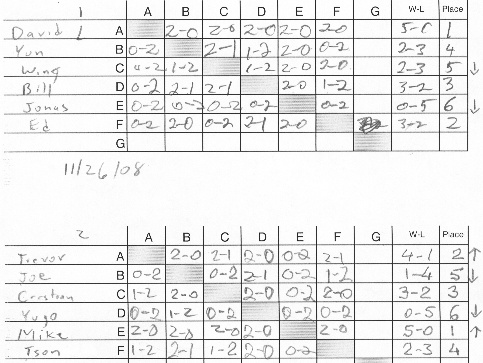 1 A B C D E F G W-L Place
David 1 A 2-0 2-0 2-0 2-0 2-0 5-0 1
Yun B 0-2 2-1 1-2 2-0 0-2 2-3 4
Wing C 0-2 1-2 1-2 2-0 2-0 2-3 5 ↓
Bill D 0-2 2-1 2-1 2-0 1-2 3-2 3
Jonas E 0-2 0-2 0-2 0-2 0-2 0-5 6 ↓
Ed F 0-2 2-0 0-2 2-1 2-0 3-2 2
G
11/26/08
2 A B C D E F G W-L Place
Trevor A 2-0 2-1 2-0 0-2 2-1 4-1 2 ↑
Joe B 0-2 0-2 2-1 0-2 1-2 1-4 5 ↓
Cristian C 1-2 2-0 2-0 0-2 2-0 3-2 3
Yugo D 0-2 1-2 0-2 0-2 0-2 0-5 6 ↓
Mike E 2-0 2-0 2-0 2-0 2-0 5-0 1 ↑
Tson F 1-2 2-1 1-2 2-0 0-2 2-3 4